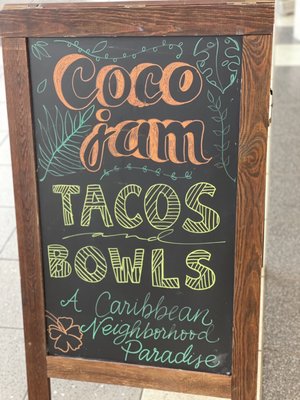 Coco
Jam
TACOS
and
BOWLS
A Caribbean
Neighborhood
Paradise